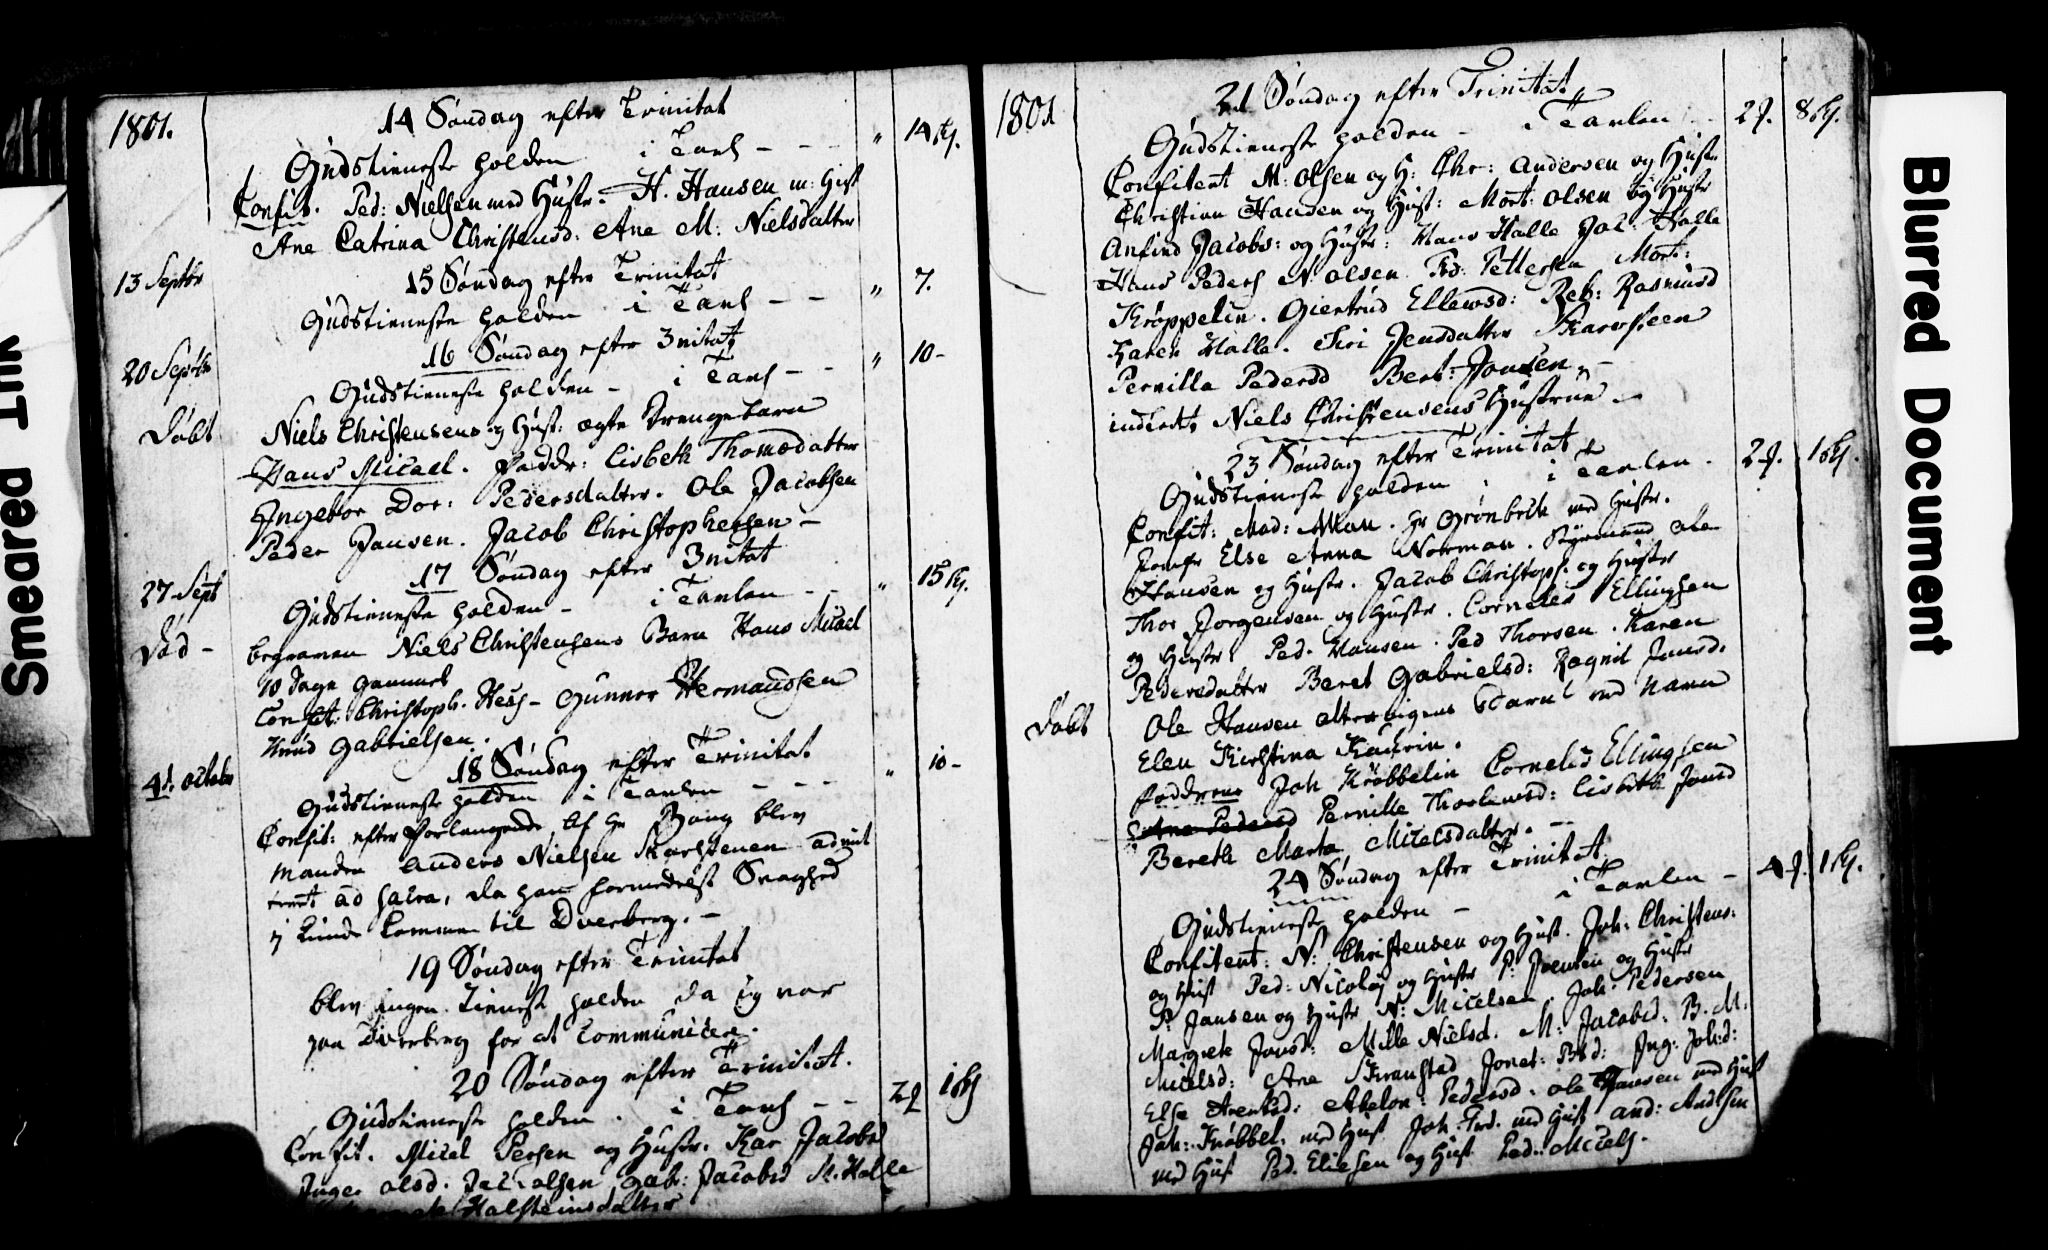 1801.
14 Søndag efter Trinitat
Gudstieneste holden i Tanh - - - " 14 ſk.
Confit. Ped: Nielsen med Hustr. H. Hansen m: Hust
Ane Catrina Christensd: Ane M: Nielsdatter
13 Septbr 15 Søndag efter Trinitat
Gudstieneste holden i Tanh - - " 7.
20 Septbr 16 Søndag efter 3nitat
Gudstieneste holden - i Tanh - - " 10 -
Døbt Niels Christensens og Hust: ægte Drengebarn
Hans Micael. Faddr: Lisbeth Thomædatter
Ingebor Dor: Pedersdatter. Ole Jacobsen
Peder Jansen. Jacob Christophersen -
27 Sept 17 Søndag efter 3nitat
Gudstieneste holden - i Tanlen - " 15 ſk.
Død - begraven Niels Christensens Barn Hans Micael
10 Dage gammel
Confit: Christoph. Hess - Gunner Hermandsen
Knud Gabrielsen.
4d. octobr 18 Søndag efter Trinitat
Gudstieneste holden i Tanlen - - - " 10 -
Confit: efter Forlangende af Hr Bang blev
Manden Anders Nielsen Karstenen admit
teret ad sacra, da han formedelst Svaghed
ej kunde komme til Dverberg. -
19 Søndag efter Trinitat
blev ingen Tieneste holden da jeg var
paa Dverberg for at Communicere.
20 Søndag efter Trinitat.
Gudstieneste holden . i Tanh - - 2 1 ſk
Confit. Micel Persen og Hustr. Kar Jacobsd
Inger olsd. Jac: olsen Gab: Jacobsd M. Halle
Halsteinsdatter
1801
21 Søndag efter Trinitat
Gudstieneste holden - i Tanlen - - 2 8 ſk.
Confitent M: Olsen og H: Chr: Andersen og Hustr
Christian Hansen og Hust: Mort: Olsen og Hustr
Anfind Jacobs: og Hustr: Hans Halle Jac: Halle
Hans Peders N: Olsen Fed: Pettersen Mort:
Krøppelin. Giertrud Ellewsd: Reb: Rasmusd
Karen Halle. Siri Jensdatter Skarsteen
Pernilla Pedersd Bert: Jonsen, -
indledt Niels Christensens Hustrue -
23 Søndag efter Trinitat
Gudstieneste holden . i Tanlen . 2 1 ſk.
Confit: Mad: Akman. Hr Grønbech med Hustr.
Jomfr Else Anna Norman. Styrmand Ole
Hansen og Hustr. Jacob Christoph: og Hustr
Thor Jørgensen og Hustr. Corneles Ellingsen
og Hustr: Ped. Hansen. Ped Thorsen. Karen
Pedersdatter Beret Gabrielsd: Ragnil Jonsd.
Døbt Ole Hansen Barn ved Navn
Elen Kirstina Kathrin.
Faddrene Joh Krøbbelin Cornelis Ellingsen
Ane Pedersd Pernille Thorlewsd: Lisbeth Jonsd
Bereth Marta Micelsdatter. -
24 Søndag efter Trinitat
Gudstieneste holden - i Tanlen - 4 1 ſk.
Confitent: N: Christensen og Hust. Joh: Christens:
og Hust Ped: Nicolay og Hustr P: Joensen og Hustr
P. Jansen og Hustr N: Micelsen. Joh: Pedersen
Margrete Jonsd: Mille Nielsd. M: Jacobsd: B. M.
Micelsd: Ane Skranstad Jonet: Ped: Ing: Joh:d:
Else Arentsd: Abelon: Pedersd. Ole Hansen med Hust
Joh: Krøbbel. med Hust Joh: Fred. med Hust And: Andsen
med Hust Ped. Eliesen og Hust Ped: Micels.
Smeared Ink
Blurred Document